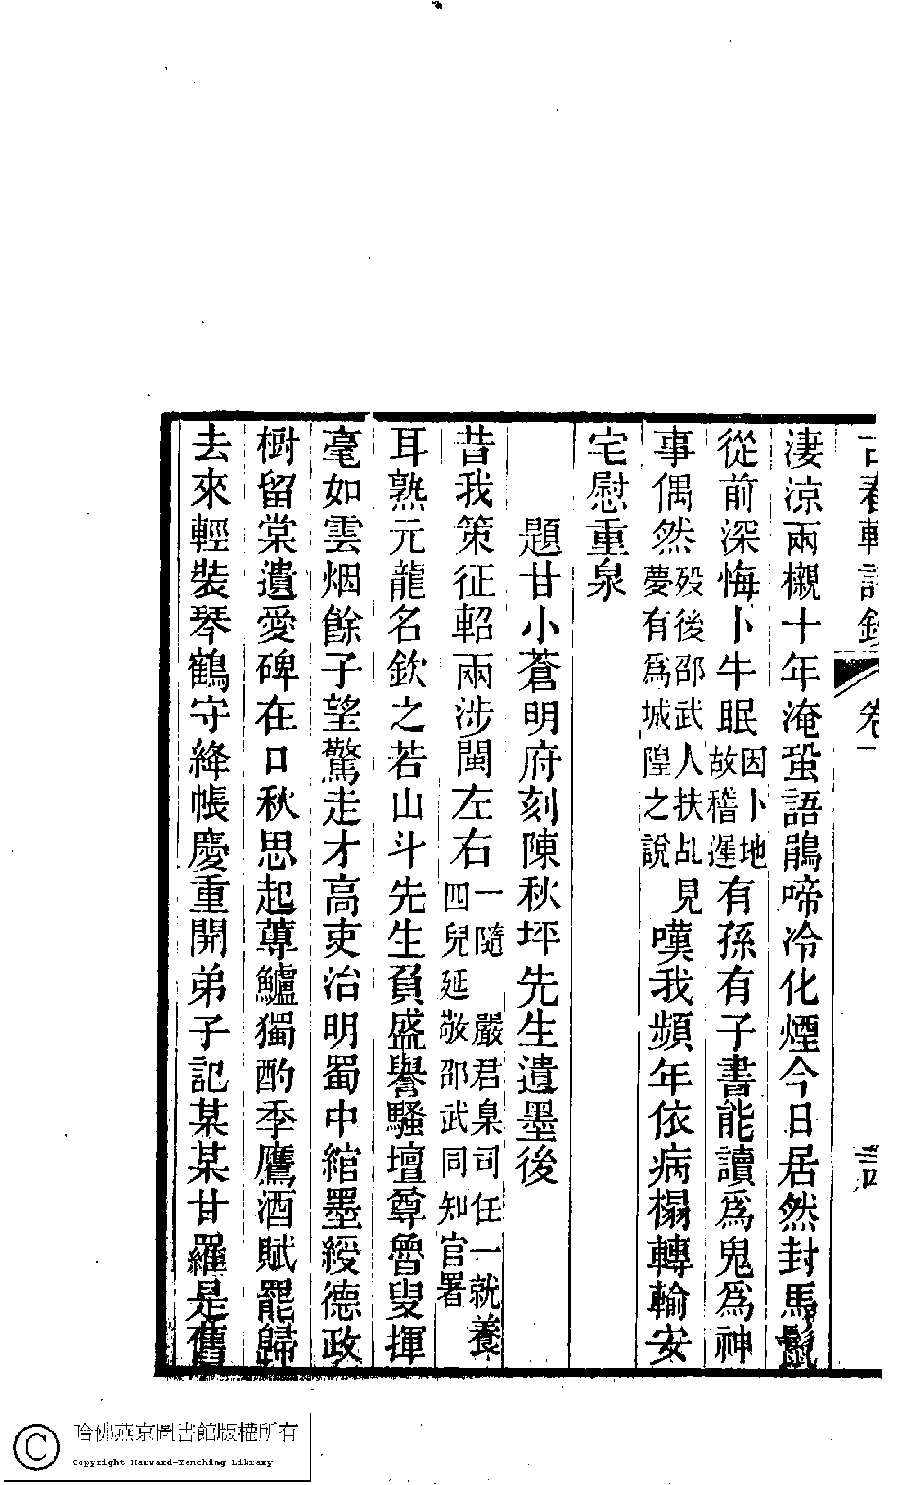 古春軒詩鈔 卷一
淒涼兩櫬十年淹蛩語鵑啼冷化煙今日居然封馬鬣
從前深悔卜牛眠因卜地故稽遲有孫有子書能讀爲鬼爲神
事偶然歿後邵武人扶乩見夢有爲城隍之說嘆我頻年依病榻轉輸安
宅慰重泉
題甘小蒼明府刻陳秋坪先生遺墨後
昔我策征軺兩涉閩左右一隨 嚴君臬司任一就養四兒延敬邵武同知官署
耳熟元龍名欽之若山斗先生負盛譽騷壇尊魯叟揮
毫如雲烟餘子望驚走才高吏治明蜀中綰墨綬德政
樹留棠遺愛碑在口秋思起蓴鱸獨酌季鷹酒賦罷歸
去來輕裝琴鶴守絳帳慶重開弟子記某某甘羅是舊
哈佛燕京圖書館版權所有
Copyright Harvard-Yenching Library